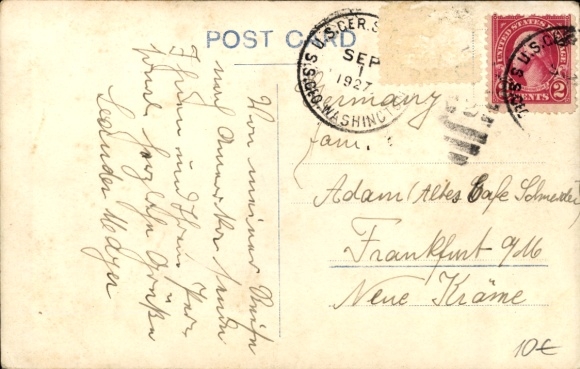 POST CARD
U.S.GER.S.
SEP
1
1927
S.S.
WASHINGTO
UNITED STATES POSTAGE
2 CENTS 2
Germany
Fam.
Adam (Altes Cafe Schneider)
Frankfurt a/M
Neue Kräme
Von meiner Reise
nach Amerika sende
Ihnen und Ihrer
herzliche Grüße
10€